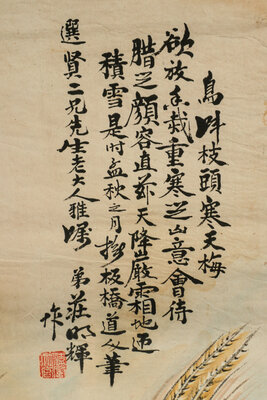 鳥叫枝頭寒天梅
欲放未栽重寒之山意會待
腊之顏容直玆天降嚴霜地
積雪是時孟秋之月 板橋道人筆
選賢二兄先生老大人雅嘱
弟莊明輝
作